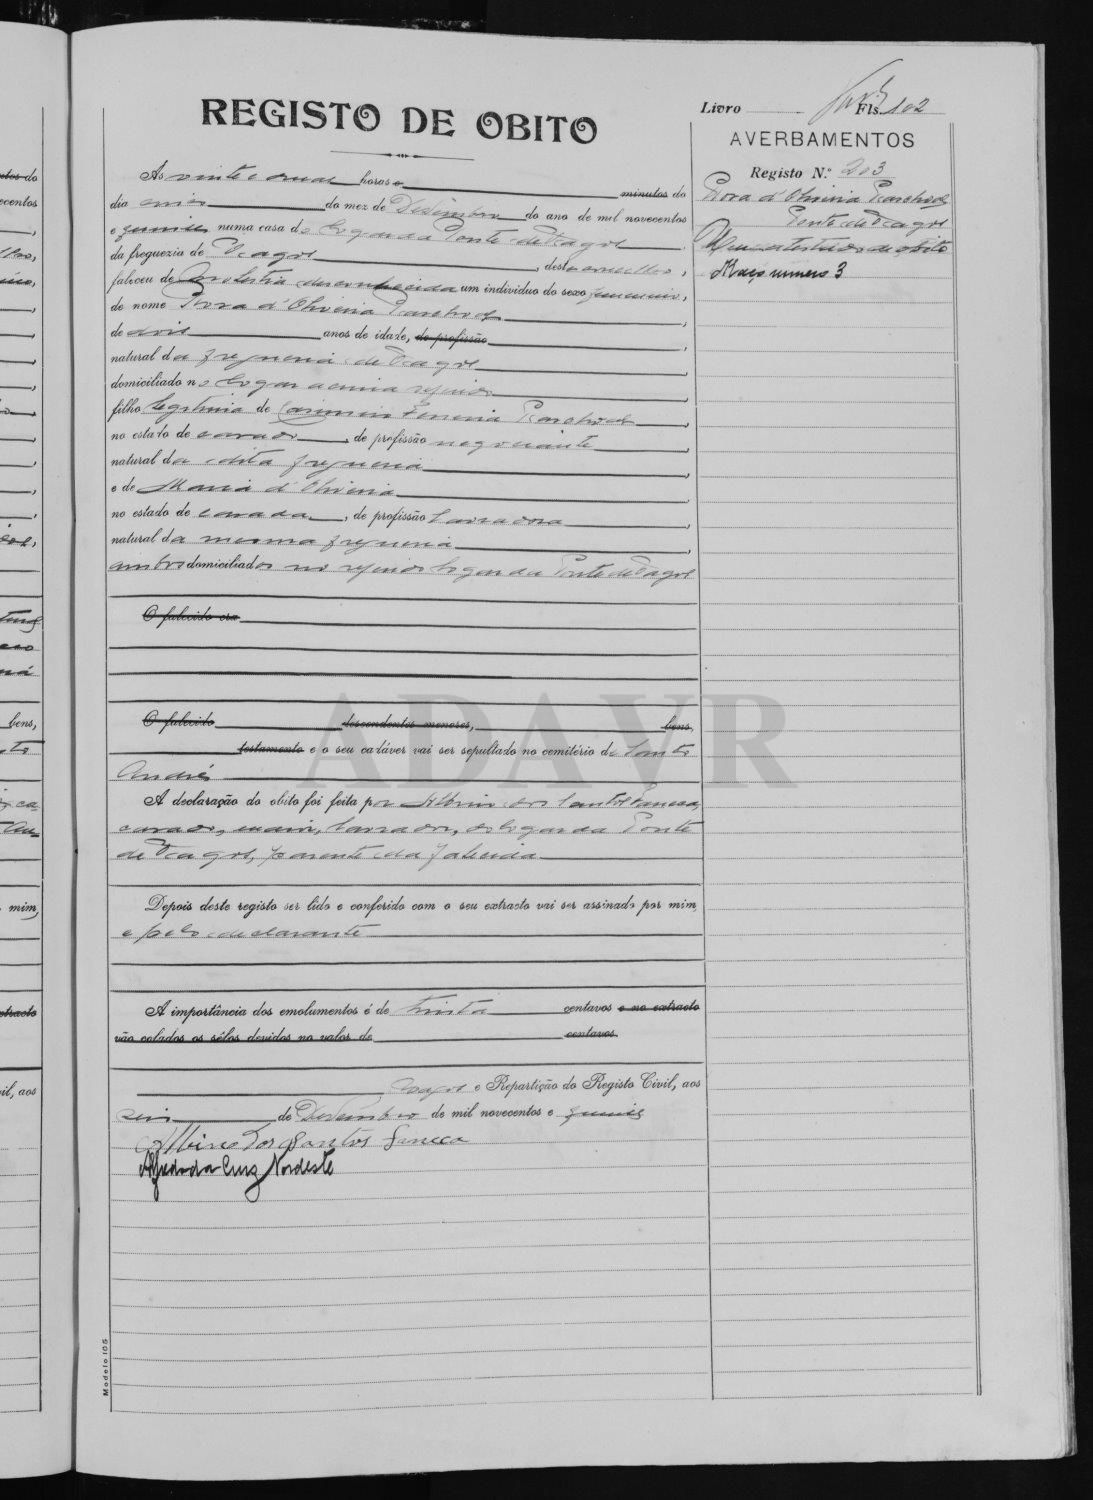 REGISTO DE OBITO
Livro Fls. 102
AVERBAMENTOS
Registo N.º 203
Rosa d'Oliveira
Ponte de Vagos
Um atestado de obito
Maço numero 3
Às vinte e horas e minutos do
dia do mez de Desembro do ano de mil novecentos
e quinze numa casa do Logar da Ponte de Vagos
da freguezia de Vagos, deste concelho,
faleceu de molestia desconhecida um individuo do sexo femenino,
de nome Rosa d'Oliveira
de dois anos de idade, de profissão
natural da freguesia de Vagos
domiciliado no Logar acima referido
filho legitima de Ferreira
no estado de casado, de profissão negociante
natural da dita freguesia
e de Maria d'Oliveira
no estado de casada, de profissão lavradora
natural da mesma freguesia
ambos domiciliados no referido Logar da Ponte de Vagos
O falecido era
O falecido descendentes menores, bens,
testamento e o seu cadáver vai ser sepultado no cemitério de Santo
André
A declaração do obito foi feita por Albino dos Santos
casado, maior, lavrador, do Logar da Ponte
de Vagos, parente da falecida
Depois deste registo ser lido e conferido com o seu extracto vai ser assinado por mim,
e pelo declarante
A importância dos emolumentos é de trinta centavos e no extracto
vão colados os sêlos devidos no valor de centavos
Vagos e Repartição do Registo Civil, aos
seis de Desembro de mil novecentos e quinze
Albino dos Santos
Alfredo da Cruz Nordeste
Modelo 105
ADAVR